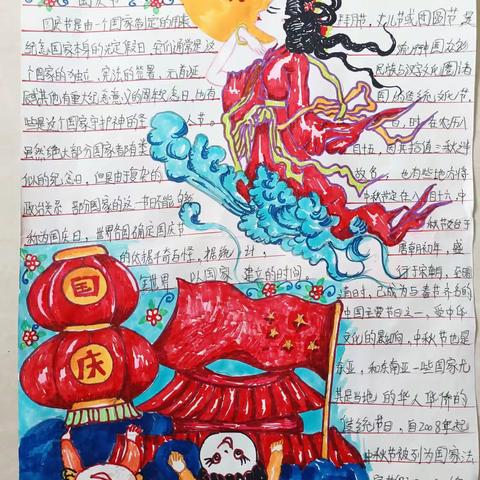 国庆节
国庆节是由一个国家制定的用来
纪念国家本身的法定假日,它们通常是这
个国家的独立、宪法的签署、元首诞
辰或其他有重大纪念意义的周年纪念日,也有
些是这个国家守护神的
人节。
虽然绝大部分国家都有类
似的纪念日,但是由于复杂的
政治关系,部分国家的这一节日不能
称为国庆日,世界各国确定国庆节
的依据千奇与怪,据统计,
全世界以国家建立的时间
国
庆
拜月节、女儿节或团圆节,是
流行
民族与汉字文化圈诸
国的传统文化节
日,时在农历八
月十五,因其恰值三秋之半
故名,也有些地方将
中秋节定在八月十六,中
秋节始于
唐朝初年,盛
行于宋朝,至明
清时,已成为与春节齐名的
中国主要节日之一,受中华
文化的影响,中秋节也是
东亚,和东南亚一些国家尤
其是当地的华人华侨的
传统节日,自2008年起
中秋节被列为国家法